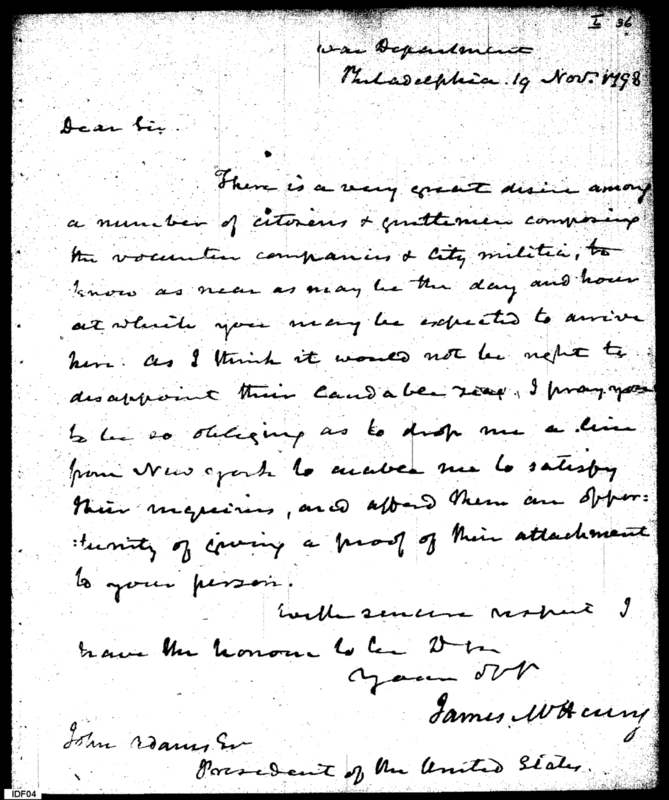 I 36
War Department
Philadelphia. 19 Nov. 1798
Dear Sir.
There is a very great desire among
a number of citizens & gentlemen composing
the volunteer companies & city militia, to
know as near as may be the day and hour
at which you may be expected to arrive
here. As I think it would not be right to
disappoint their laudable zeal, I pray you
to be so obliging as to drop me a line
from New York to enable me to satisfy
their inquiries, and afford them an oppor:
:tunity of giving a proof of their attachment
to your person.
With sincere respect I
have the honour to be Dr Sir
Your obt
James McHenry
John Adams Esr
President of the United States.
IDF04